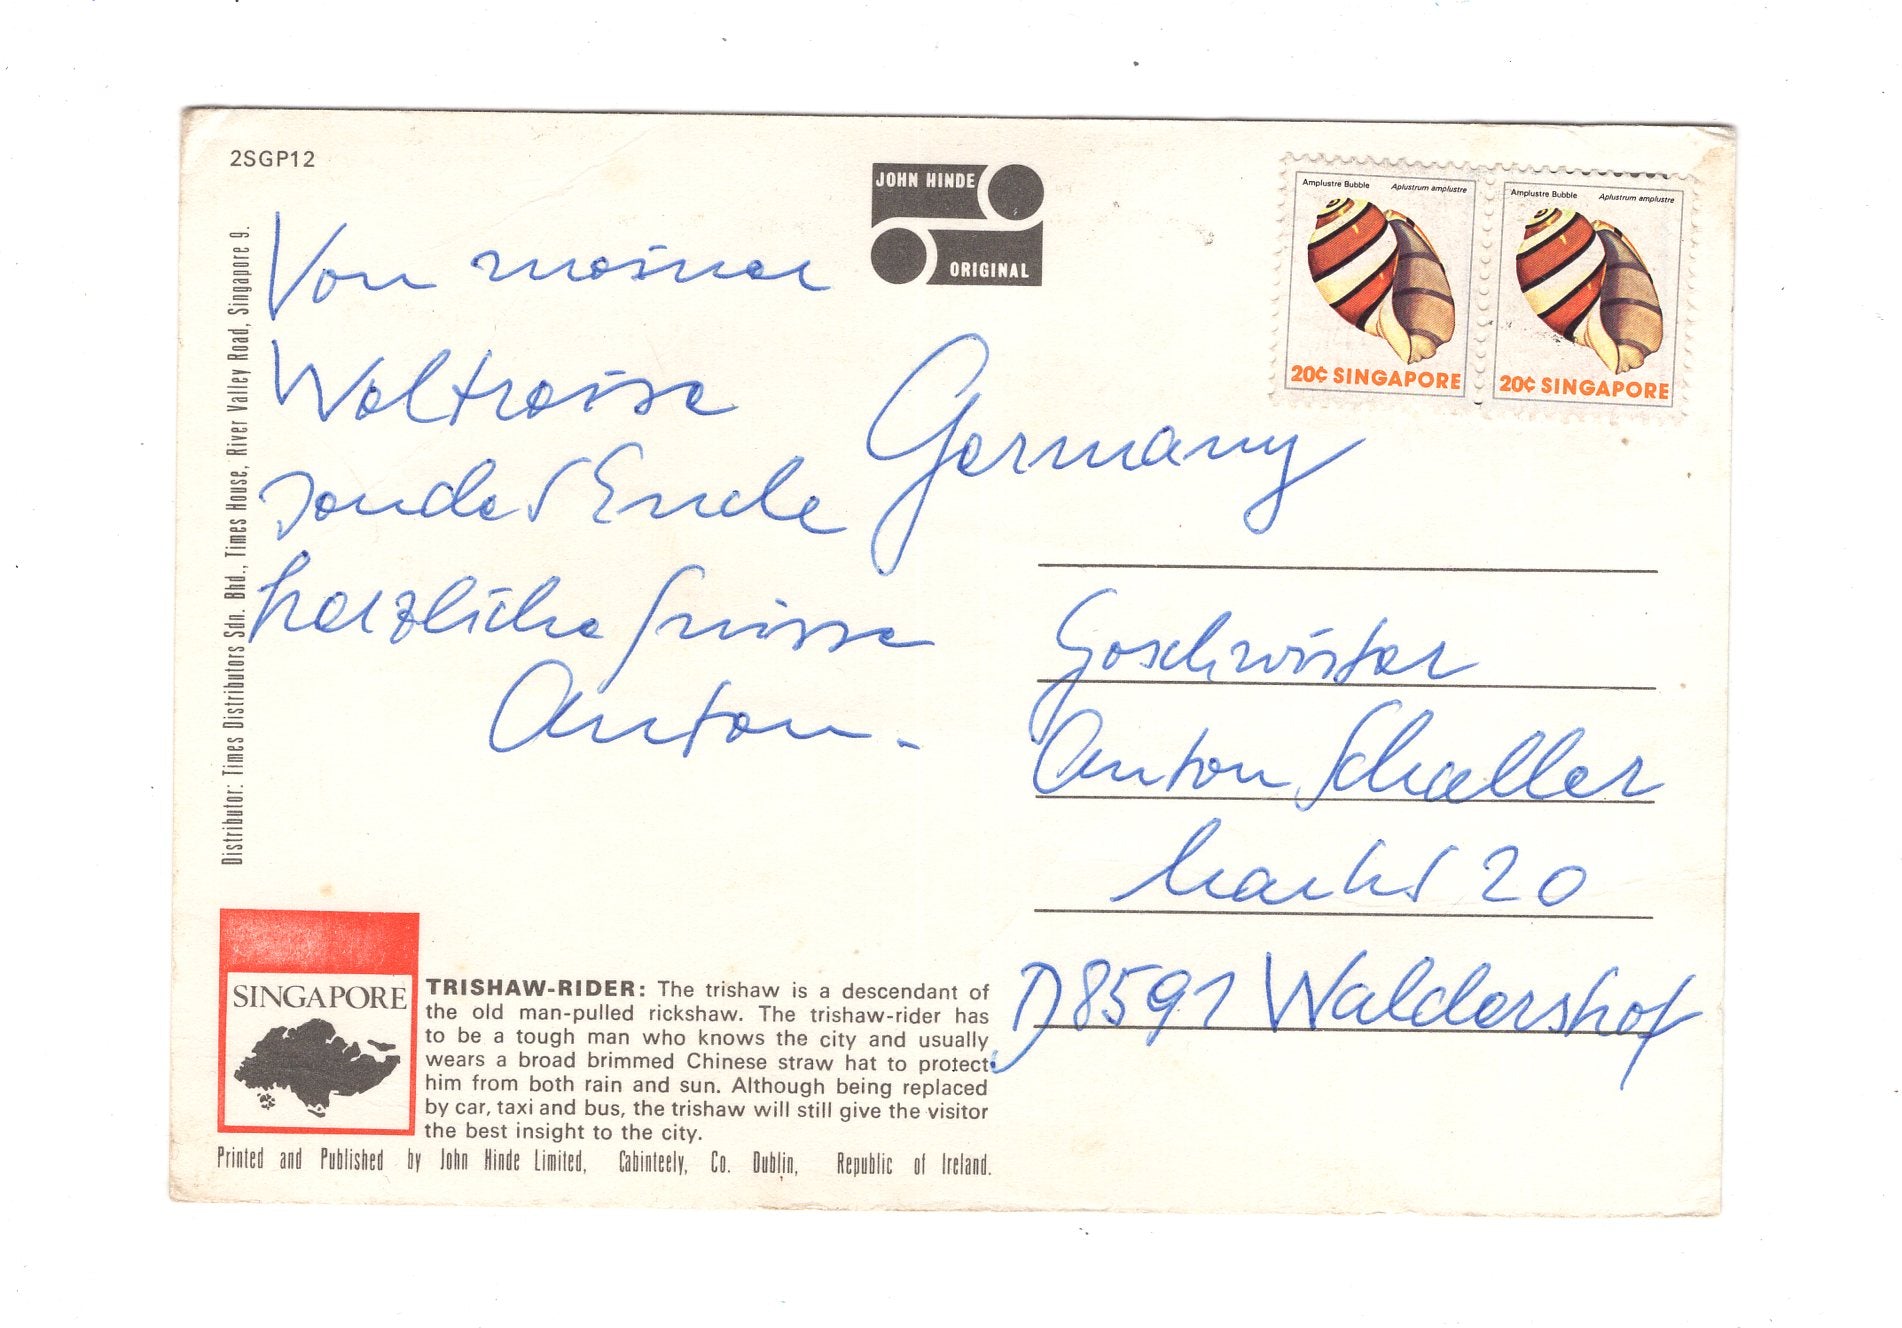 2SGP12
JOHN HINDE
ORIGINAL
Amplustre Bubble Aplustrum amplustre
20¢ SINGAPORE
Amplustre Bubble Aplustrum amplustre
20¢ SINGAPORE
Distributor: Times Distributors Sdn. Bhd., Times House, River Valley Road, Singapore 9.
Von meiner
Weltreise
sendet Ende
herzliche Grüsse
Anton.
Germany
Geschwister
Anton Schaller
Markt 20
D8591 Waldershof
SINGAPORE
TRISHAW-RIDER: The trishaw is a descendant of
the old man-pulled rickshaw. The trishaw-rider has
to be a tough man who knows the city and usually
wears a broad brimmed Chinese straw hat to protect
him from both rain and sun. Although being replaced
by car, taxi and bus, the trishaw will still give the visitor
the best insight to the city.
Printed and Published by John Hinde Limited, Cabinteely, Co. Dublin, Republic of Ireland.